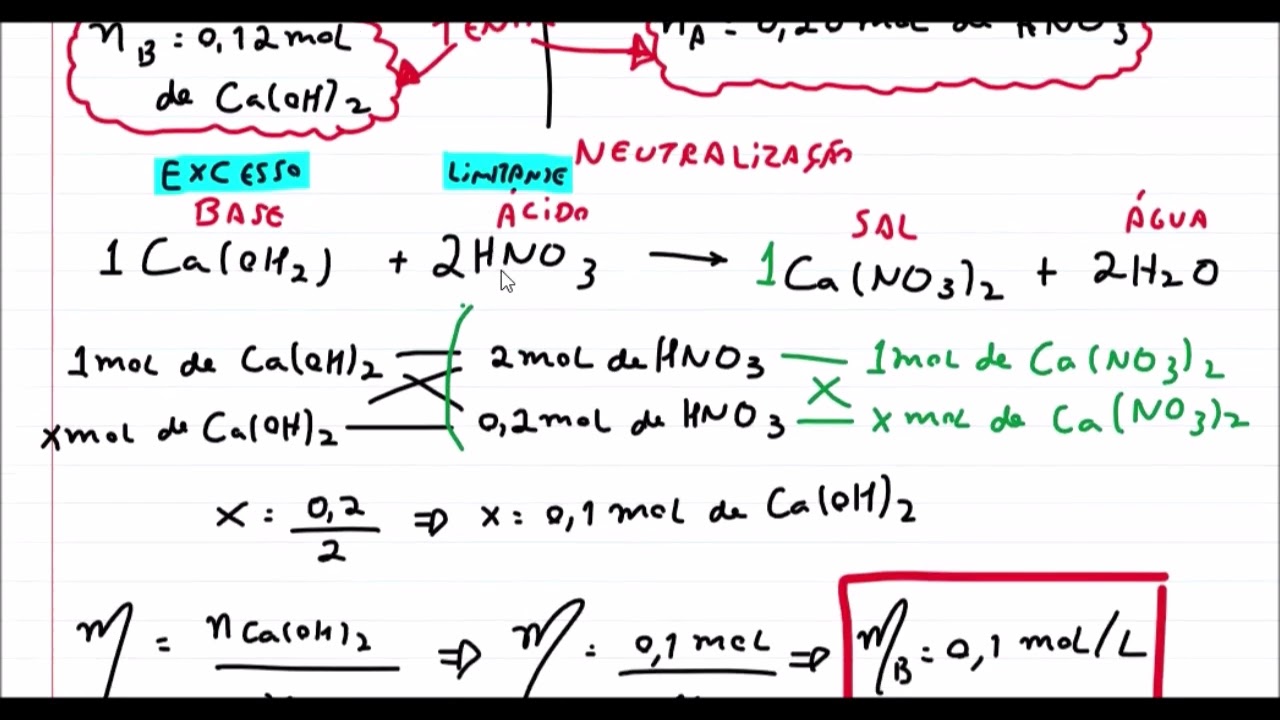 n B = 0,12 mol
de Ca(OH)2
nA = 0,20 mol de HNO3
NEUTRALIZAÇÃO
EXCESSO LIMITANTE
BASE ÁCIDO SAL ÁGUA
1 Ca(OH2) + 2HNO3 → 1Ca(NO3)2 + 2H2O
1mol de Ca(OH)2 2mol de HNO3 1mol de Ca(NO3)2
xmol de Ca(OH)2 0,2mol de HNO3 x mol de Ca(NO3)2
x = 0,2 / 2 ⇒ x = 0,1 mol de Ca(OH)2
M = n Ca(OH)2 ⇒ M = 0,1 mol ⇒ M B = 0,1 mol/L